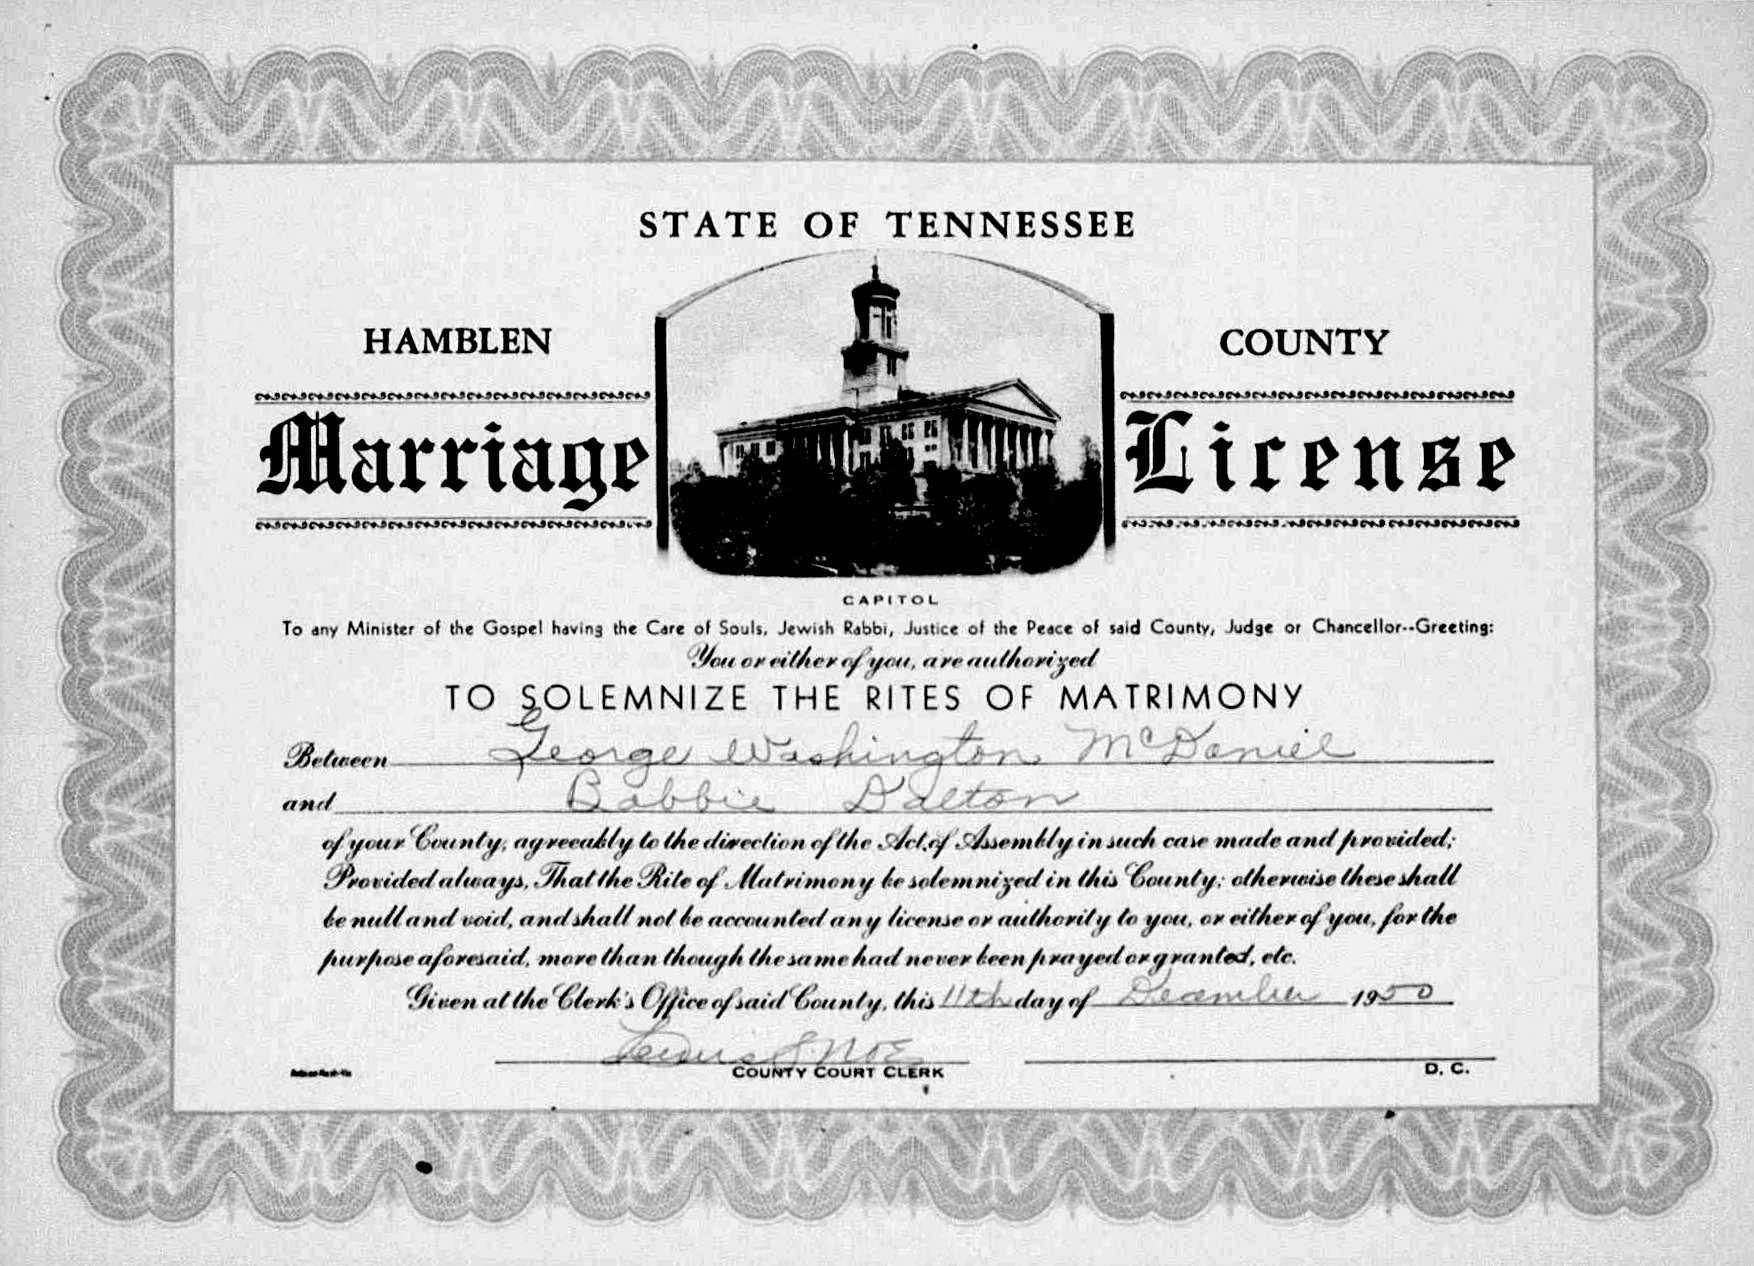 STATE OF TENNESSEE
HAMBLEN COUNTY
Marriage License
CAPITOL
To any Minister of the Gospel having the Care of Souls, Jewish Rabbi, Justice of the Peace of said County, Judge or Chancellor--Greeting:
You or either of you, are authorized
TO SOLEMNIZE THE RITES OF MATRIMONY
Between George Washington McDaniel
and Bobbie Dalton
of your County, agreeably to the direction of the Act, of Assembly in such case made and provided;
Provided always, That the Rite of Matrimony be solemnized in this County; otherwise these shall
be null and void, and shall not be accounted any license or authority to you, or either of you, for the
purpose aforesaid, more than though the same had never been prayed or granted, etc.
Given at the Clerk's Office of said County, this 11th day of December 1950
Lewis J. Noe
COUNTY COURT CLERK D. C.